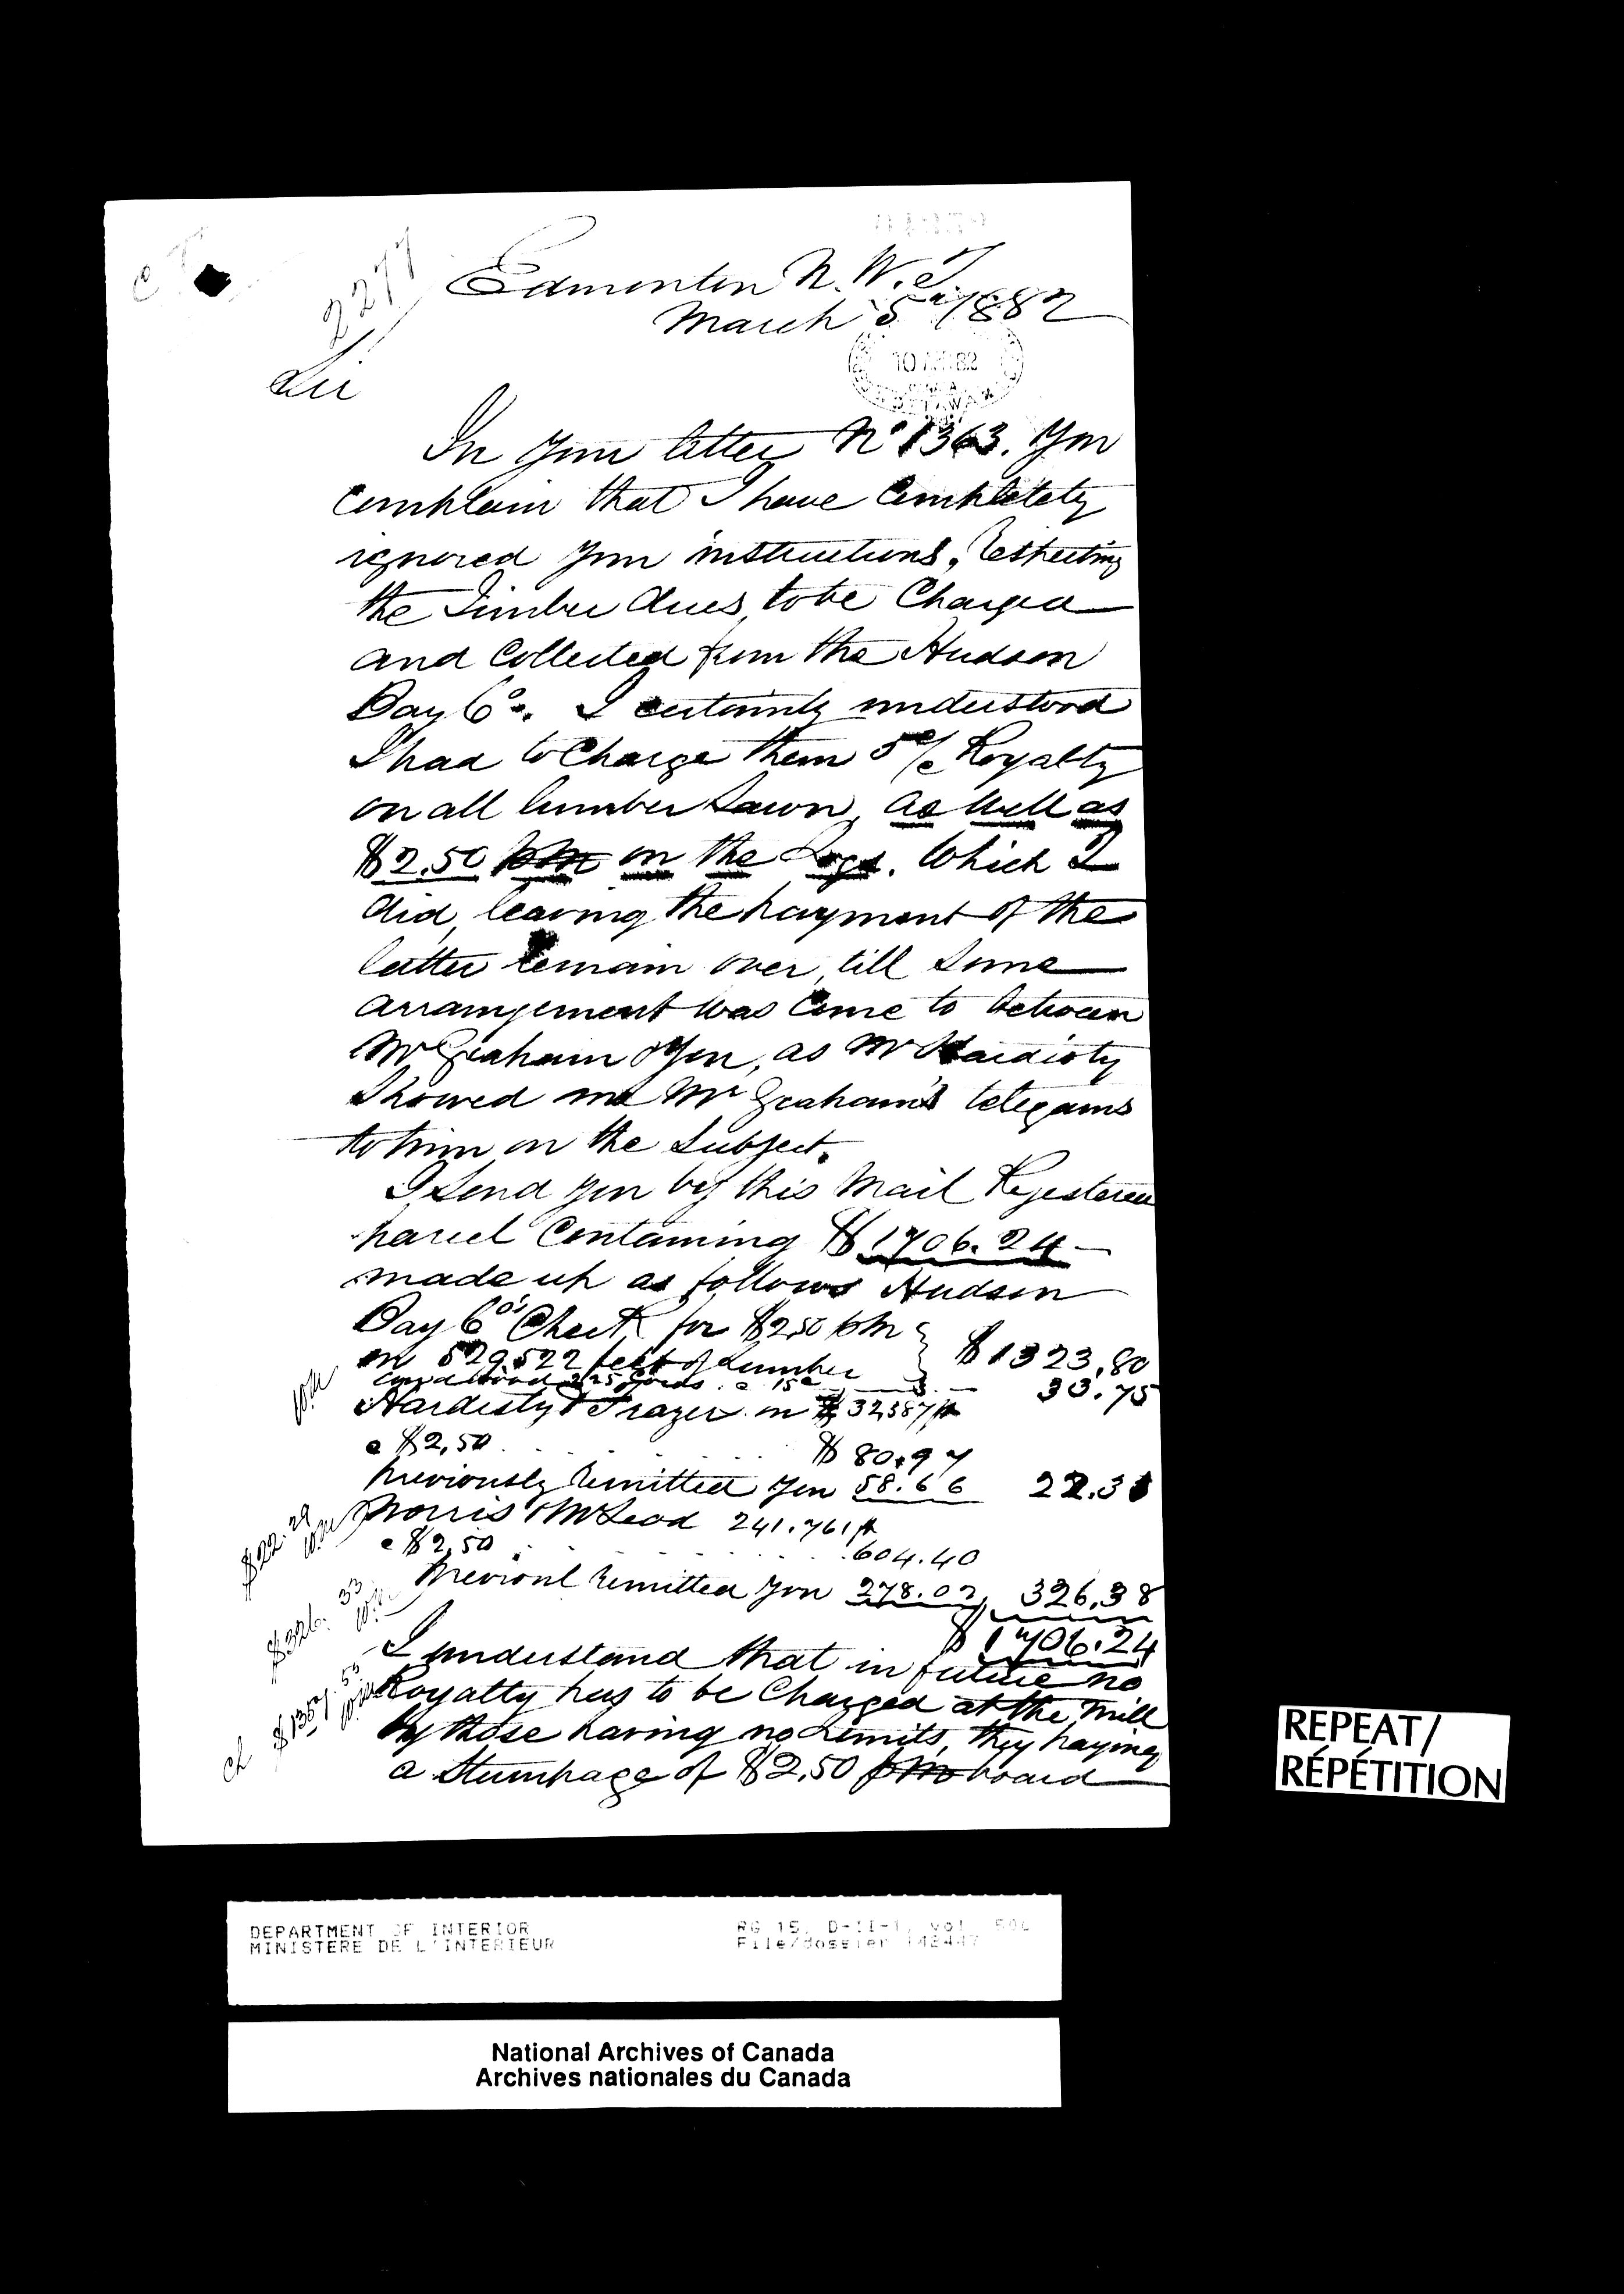 2277
Edmonton N. W. T.
March 5th 1882
10 APR 82
OTTAWA
Sir
In your letter No 1363. You
complain that I have completely
ignored your instructions, respecting
the Timber dues, to be Charged
and Collected from the Hudson
Bay Co. I certainly understood
I had to Charge them 5 % Royalty
on all lumber Sawn, as well as
$2.50 pm on the Logs. Which I
did, leaving the payment of the
latter remain over, till Some
arrangement was Come to between
Mr Graham & You, as Mr Hardisty
Showed me Mr Graham's telegams
to him on the Subject.
I Send you by this Mail Registered
parcel Containing $1706.24 —
made up as follows Hudson
Bay Co's Check for $2,50 pm } $1323,80
on 529,522 feet of Lumber
Cord Wood 225 Cords @ 15c 33.75
Hardisty & Frazer on 32,387 ft
@ $2,50 . . . . $80.97
previously remitted you 58.66 22.31
Norris & McLeod 241.761 ft
@ $2,50 . . . . 604.40
Previous remitted you 278.02 326.38
$1706.24
$22.29
$326.33
Ch $1357.53
I understand that in future no
Royalty has to be Charged at the Mill
by those having no Limits, they paying
a Stumpage of $2,50 pm board
REPEAT/
RÉPÉTITION
DEPARTMENT OF INTERIOR RG 15, D-II-1, vol.
MINISTERE DE L'INTERIEUR File/dossier
National Archives of Canada
Archives nationales du Canada